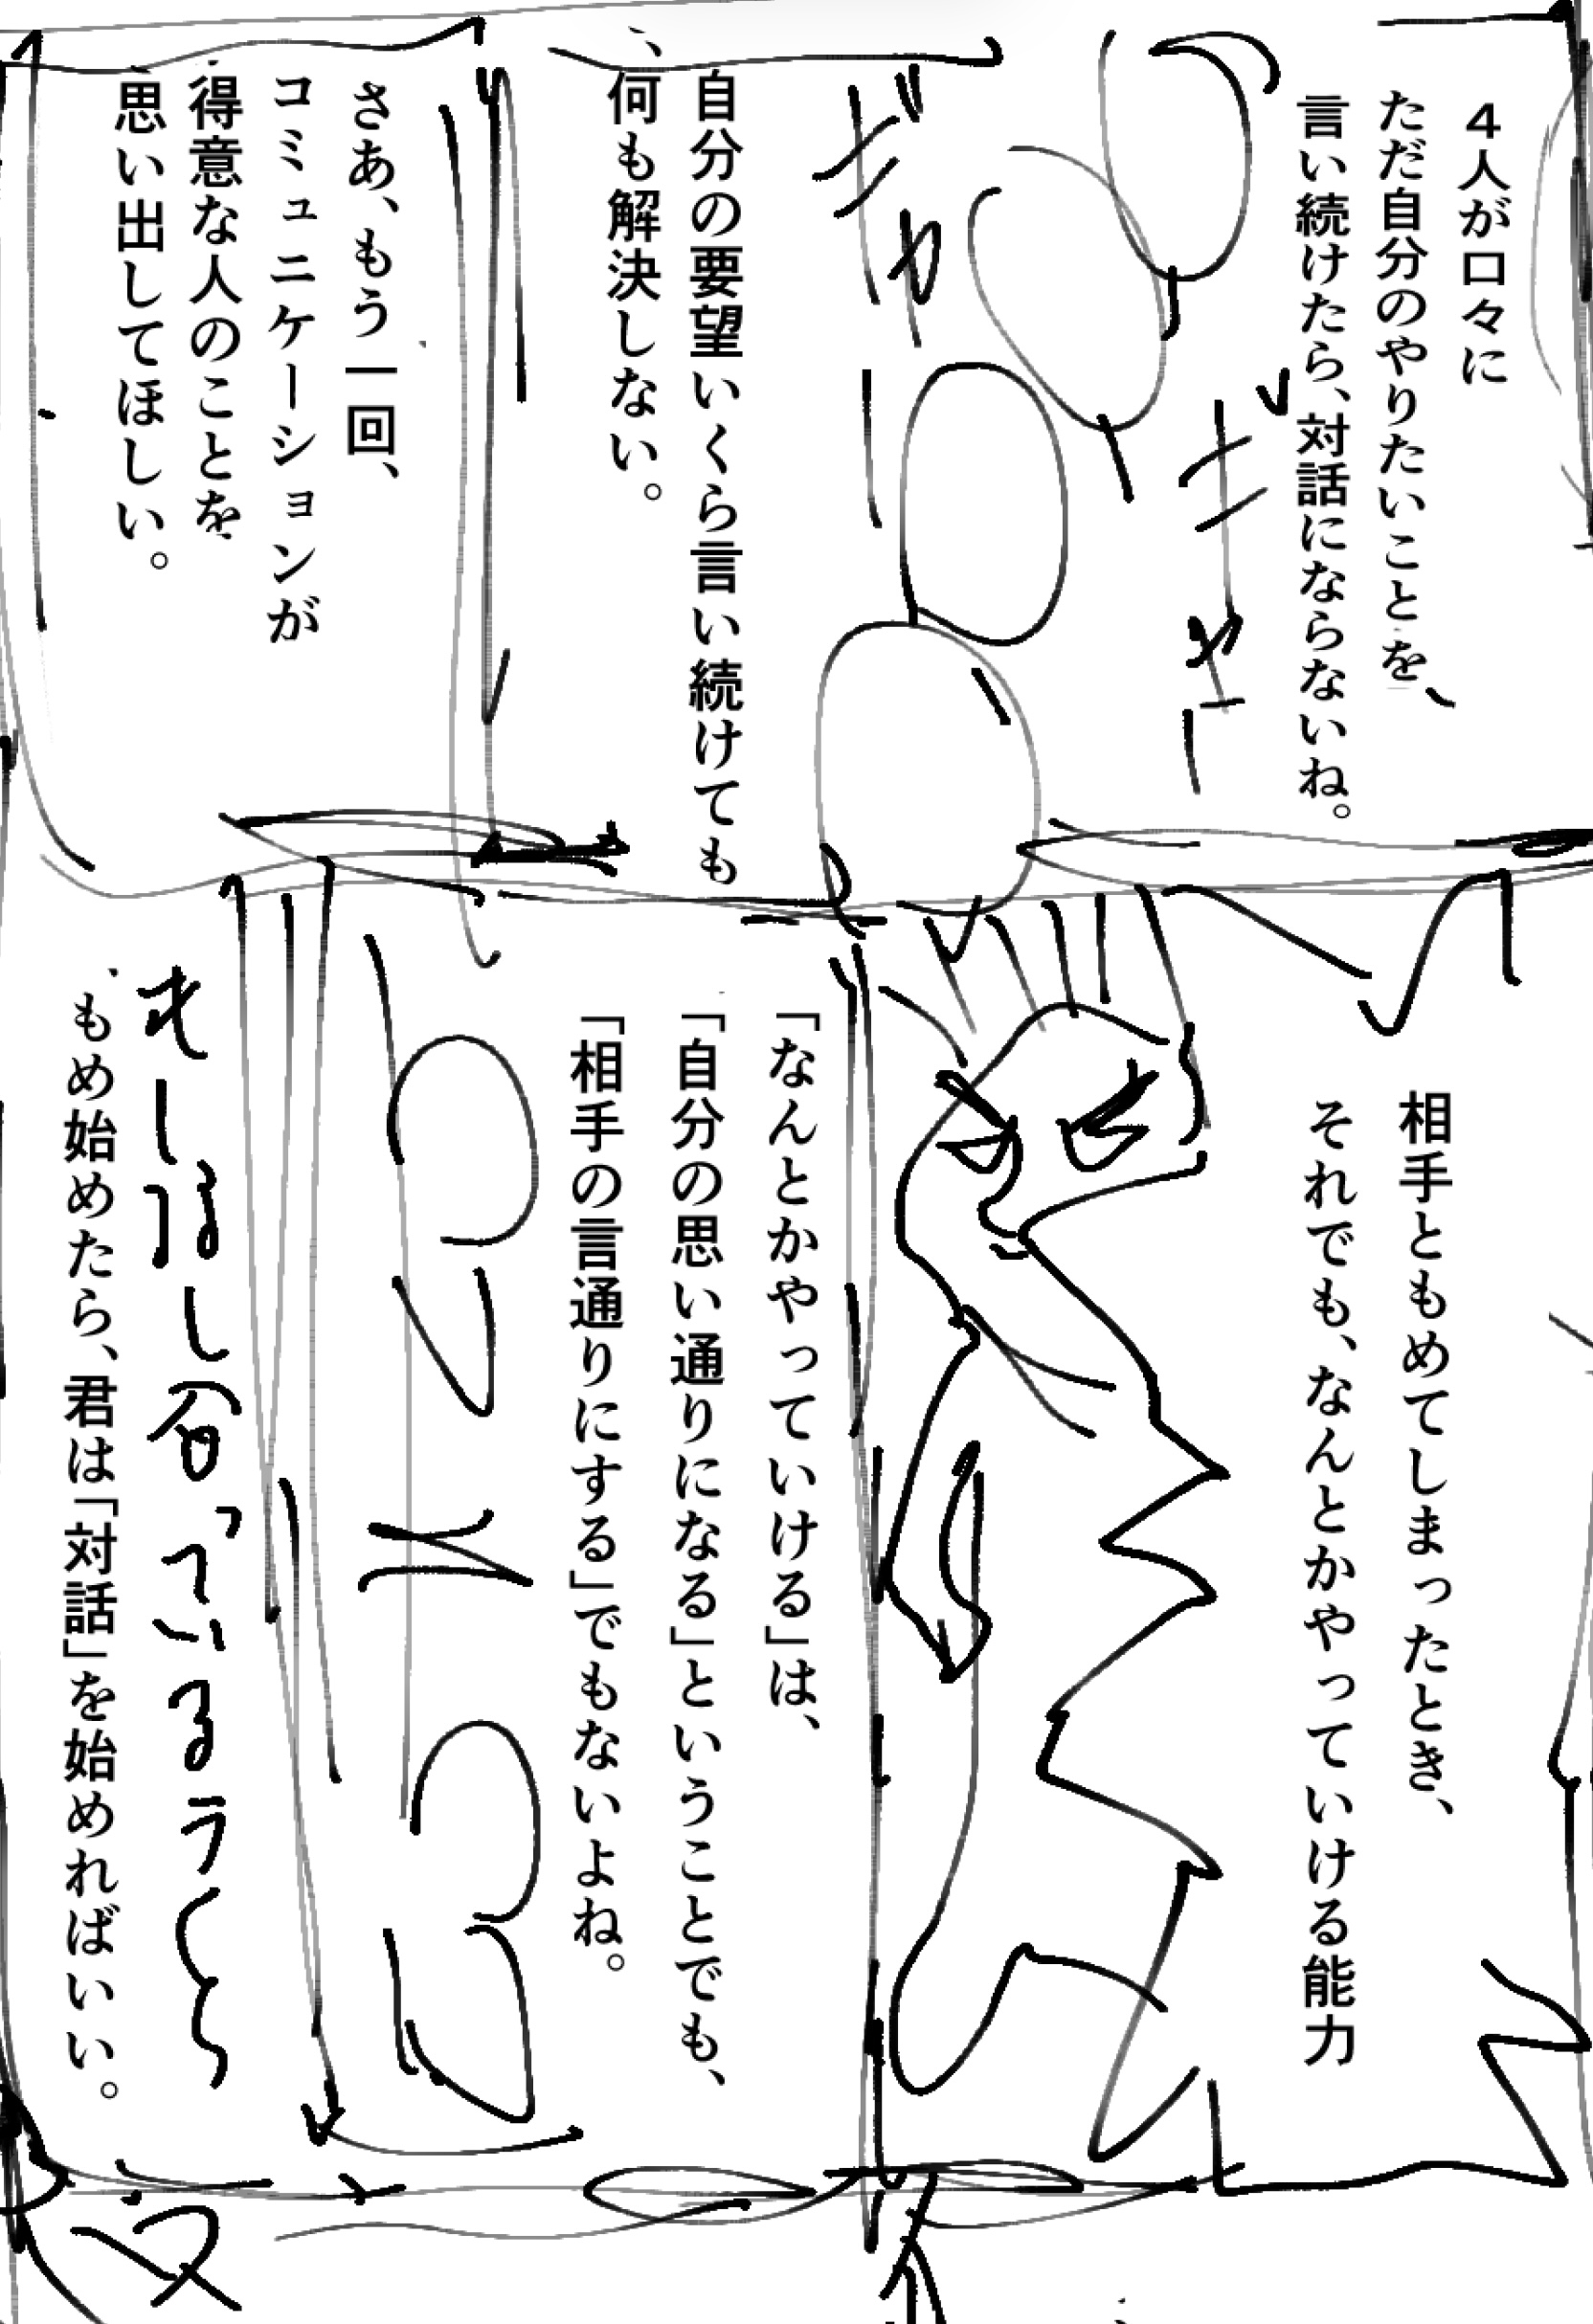 4人が口々に
ただ自分のやりたいことを、
言い続けたら、対話にならないね。
ギャー
ギャー
自分の要望いくら言い続けても
、何も解決しない。
さあ、もう一回、
コミュニケーションが
得意な人のことを
思い出してほしい。
相手ともめてしまったとき、
それでも、なんとかやっていける能力
「なんとかやっていける」は、
「自分の思い通りになる」ということでも、
「相手の言通りにする」でもないよね。
もめ始めたら、君は「対話」を始めればいい。